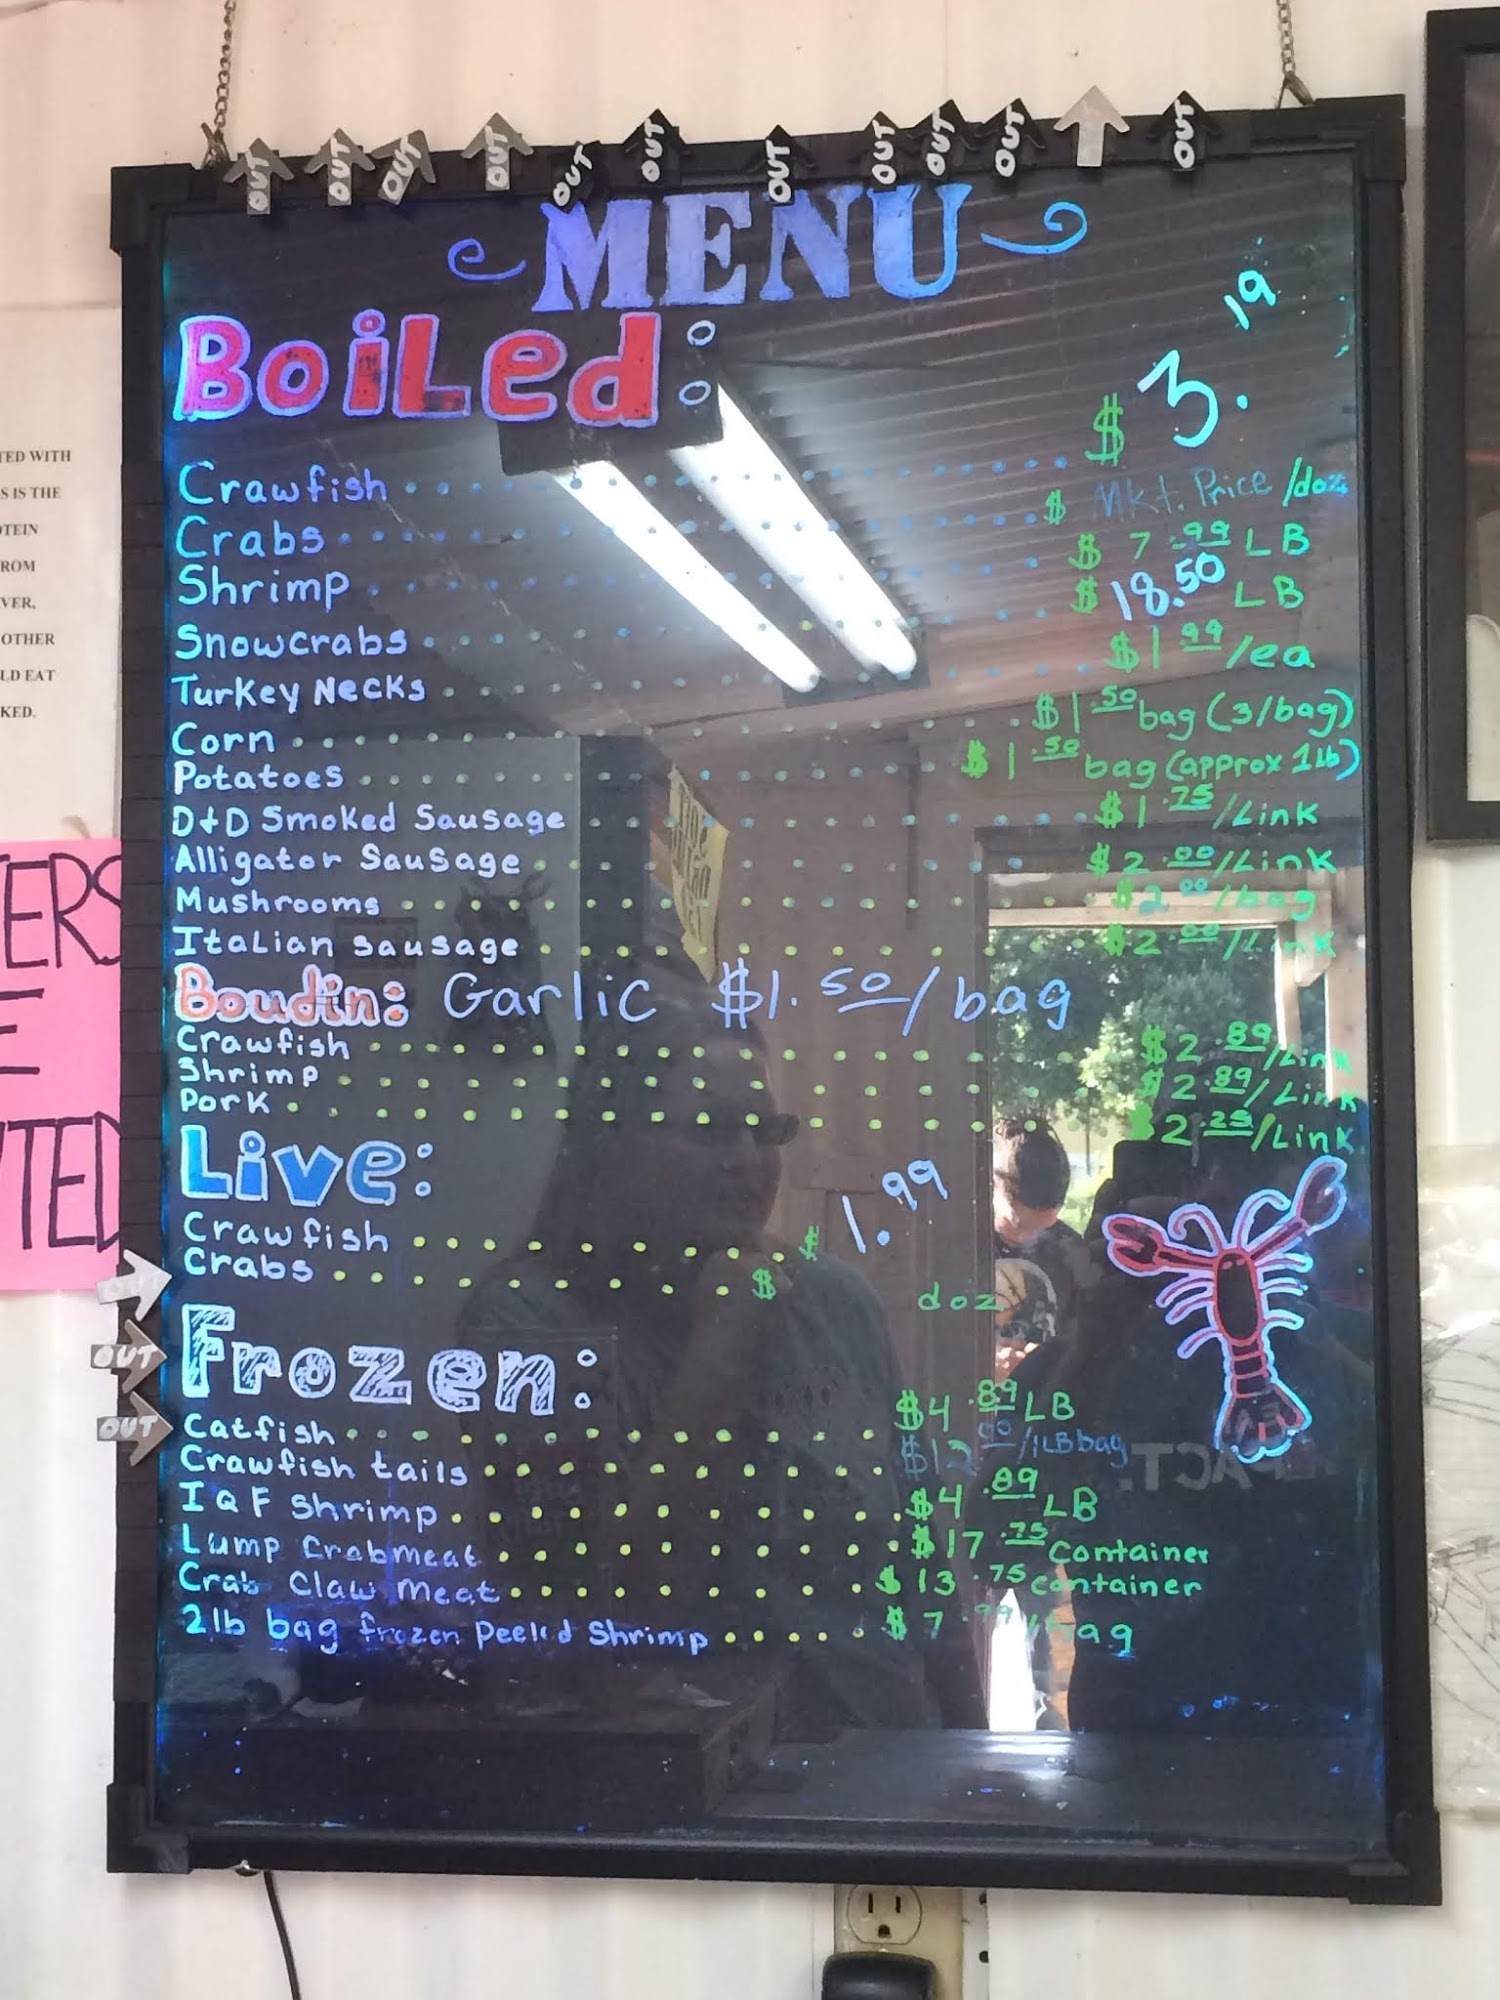 OUT OUT OUT OUT OUT OUT OUT OUT OUT OUT OUT
MENU
BoiLed:
Crawfish $ 3.19
Crabs $ Mkt. Price /doz
Shrimp $ 7.99 LB
Snowcrabs $ 18.50 LB
Turkey Necks $1.99/ea
Corn $1.50 bag (3/bag)
Potatoes $1.50 bag (approx 1lb)
D+D Smoked Sausage $1.75/Link
Alligator Sausage $2.00/Link
Mushrooms $2.00/bag
Italian sausage $2.00/Link
Boudin: Garlic $1.50/bag
Crawfish $2.89/Link
Shrimp $2.89/Link
Pork $2.25/Link
Live:
Crawfish $ 1.99
Crabs $ doz
OUT
Frozen:
OUT
Catfish $4.89 LB
OUT
Crawfish tails $12 /1LB bag
IQF Shrimp $4.89 LB
Lump Crabmeat $17.75 container
Crab Claw Meat $13.75 container
2lb bag frozen Peeled Shrimp $7.99/bag
TED WITH
S IS THE
OTEIN
ROM
VER,
OTHER
LD EAT
KED.
TERS
E
TED